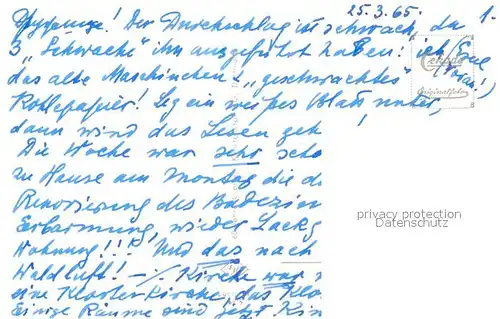 25.3.65. 1.
! Der Durchschlag ist schwach, da
3 "Schwache" ihn ausgeführt haben: ich (Eure
das alte Maschinchen u. "geschwachtes"
Kohlepapier! Leg ein weißes Blatt unter,
dann wird das Lesen geh
Die Woche war sehr scho
zu Hause am Montag die d
Renovierung des Badezim
Erbarmung, wieder Lackg
Wohnung!!! Und das nach
Waldluft! -/- Kirche war
eine Klosterkirche, das Klo
Einige Räume sind jetzt Kin
Originalfoto
privacy protection
Datenschutz